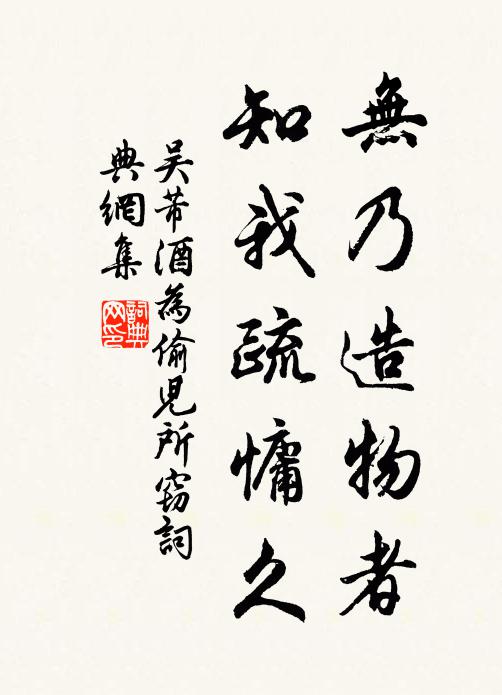 無乃造物者
知我疏慵久
吴芾酒為偷兒所竊詞
典網集
詞典
网印